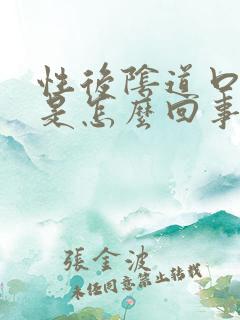 性後陰道口
是怎麼回事
張金波
未经同意禁止转载